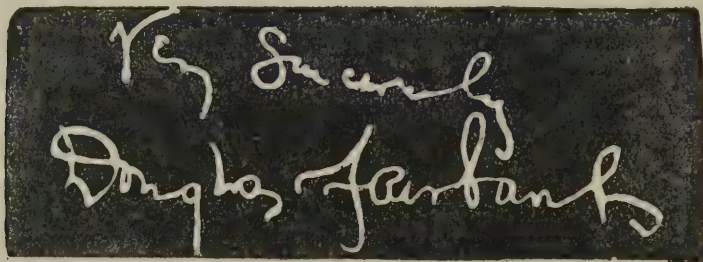 Very Sincerely
Douglas Fairbanks